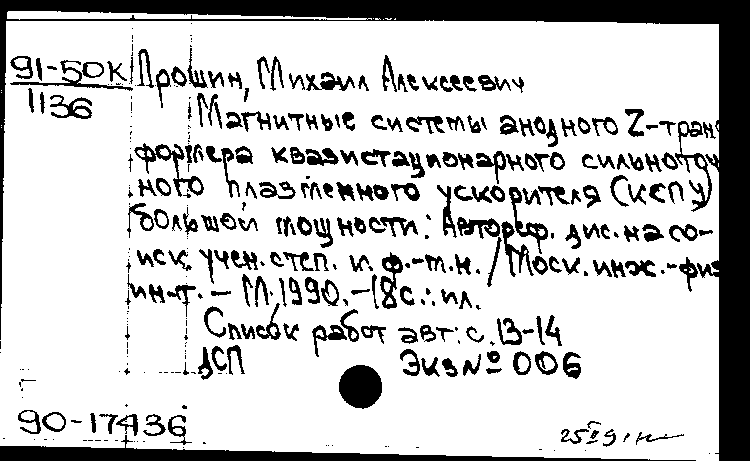 91-50К Прошин, Михаил Алексеевич
1136
Магнитные системы анодного Z-транс
форmера квазистационарного сильноточ
ного плазменного ускорителя (КСПУ)
большой мощности: Автореф. дис. на со-
иск. учен. степ. к. ф.-м.н. / Моск. инж.-физ
ин-т. – М. 1990. – 18с.: ил.
Список работ авт.: с. 13-14
ДСП Экз № 006
90-17436